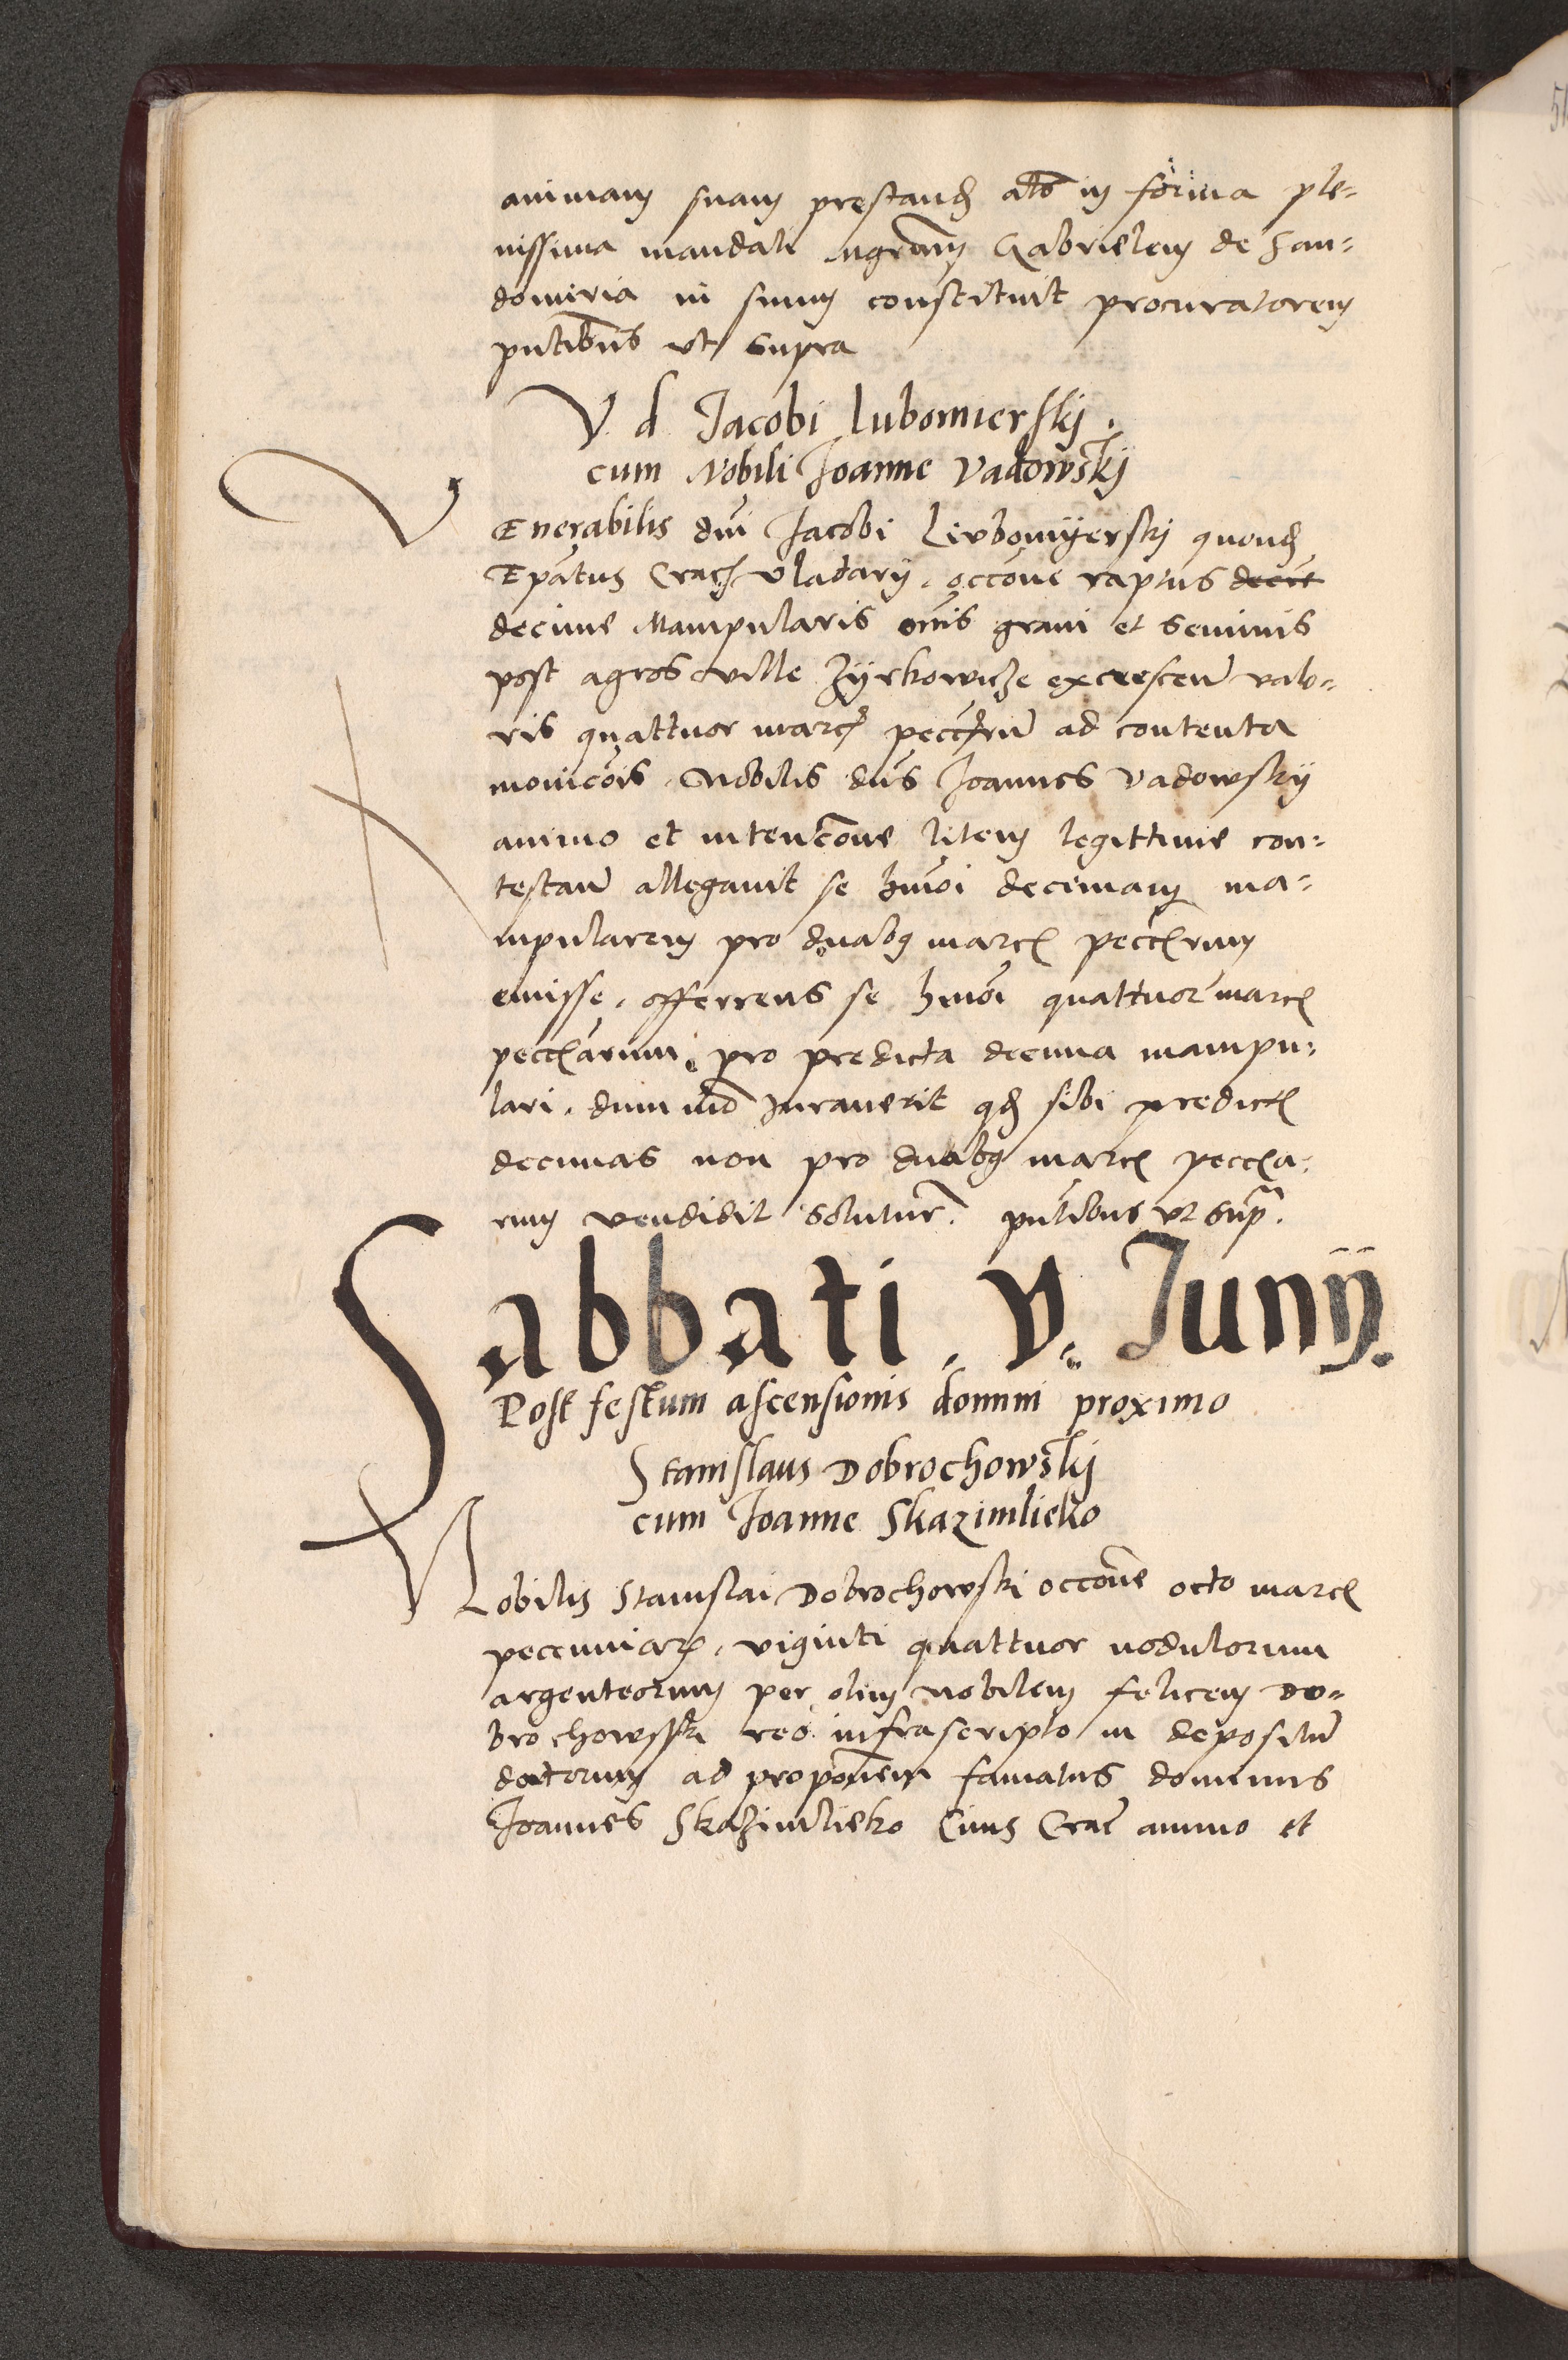 animam suam prestand als in forma ple=
nissima mandati mgrum Gabrielem de San=
domiria in suum constituit procuratorem
pntibus vt supra
V. d. Jacobi Lubomierskj.
cum Nobili Joanne Vadowskj
VEnerabilis dni Jacobi Lvbomyerskj quond
Epatus Crac vladarij. occone raptus decit
decime Manipularis omis grani et seminis
post agros ville Zyrkowicze excrescen valo=
ris quattuor marc pecc̃rum ad contenta
monicois. Nobilis dns Joannes Vadowskij
animo et intencone litem legittime con=
testan allegauit se hmoi decimam ma=
nipularem pro duabq marc peccrum
emisse. offerrens se hmoi quattuor marc
peccarum. pro predicta decima manipu=
lari. dummo Jurauerit qd sibi predict
decimas non pro duabq marc pecca=
rum vendidit solutur. pntibus vt supra.
Sabbati. V. Junij.
Post festum ascensionis domini proximo
Stanislaus Dobrochowskj
cum Joanne Skazimlieko
Nobilis Stanislai Dobrochowski occone octo marc
pecuniar. viginti quattuor nodulorum
argenteorum per olim nobilem felicem Do=
brochowsski reo infrascripto in depositum
datorum ad proponem famatus dominus
Joannes Skazimlieko Ciuis Crac animo et